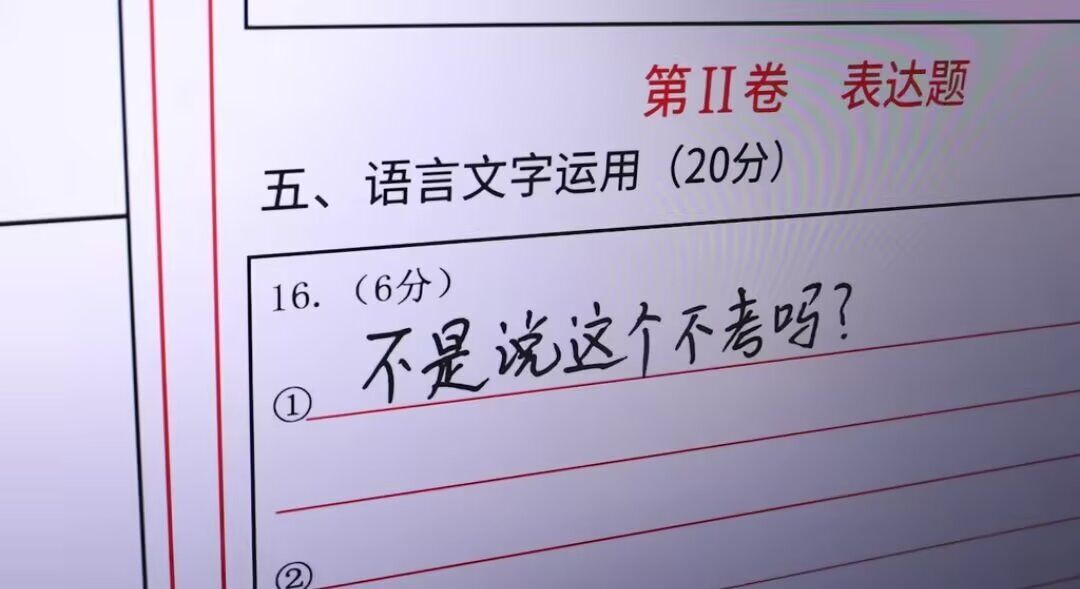 第II卷 表达题
五、语言文字运用（20分）
16.（6分）
不是说这个不考吗？
①
②